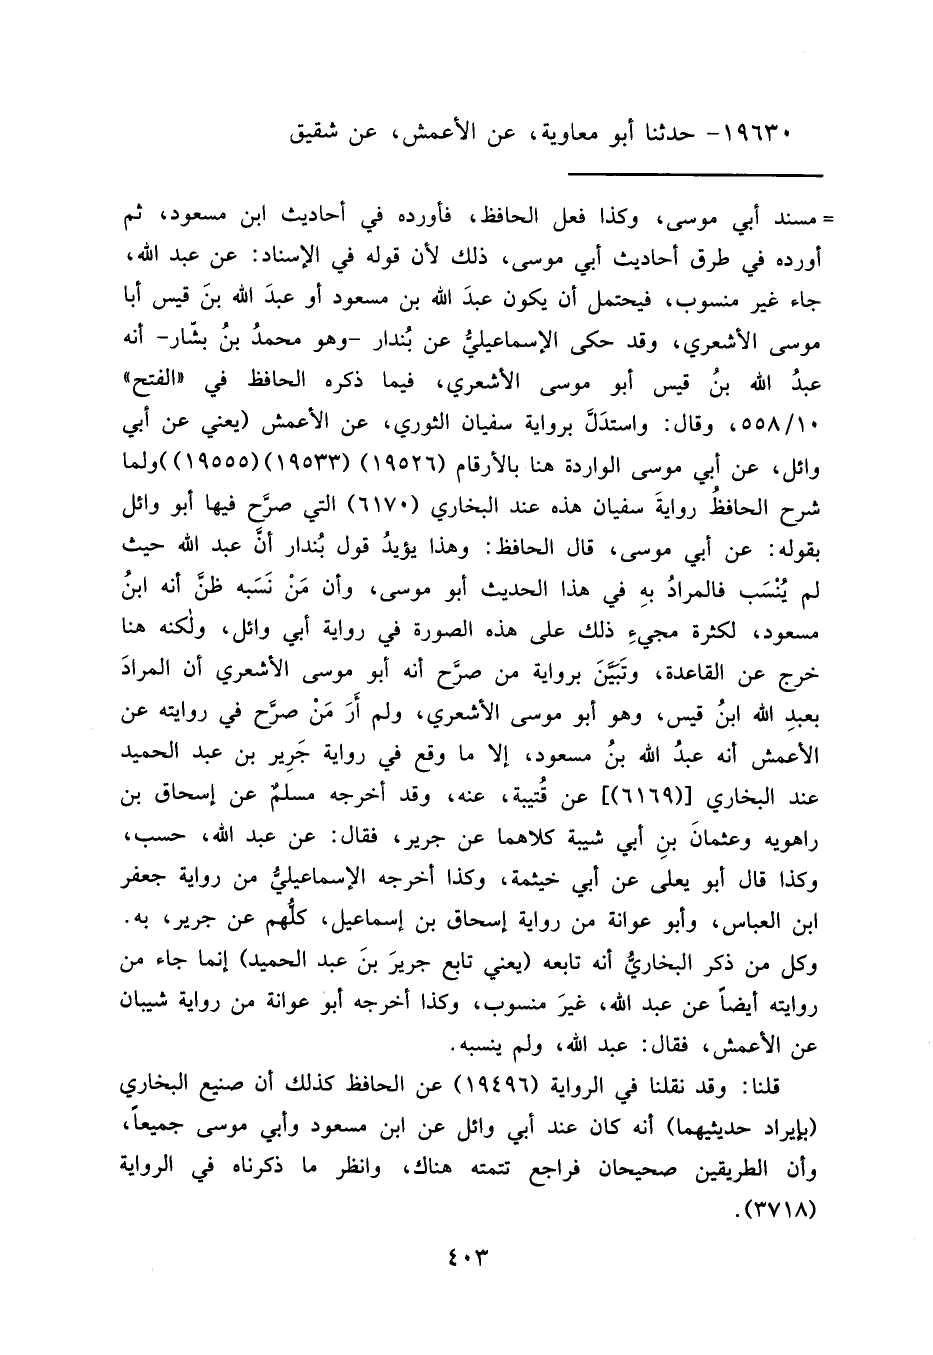 ١٩٦٣٠- حدثنا أبو معاوية، عن الأعمش، عن شقيق
= مسند أبي موسى، وكذا فعل الحافظ، فأورده في أحاديث ابن مسعود، ثم
أورده في طرق أحاديث أبي موسى، ذلك لأن قوله في الإسناد: عن عبد الله،
جاء غير منسوب، فيحتمل أن يكون عبدَ الله بن مسعود أو عبدَ الله بنَ قيس أبا
موسى الأشعري، وقد حكى الإسماعيليُّ عن بُندار -وهو محمدُ بنُ بشّار- أنه
عبدُ الله بنُ قيس أبو موسى الأشعري، فيما ذكره الحافظ في «الفتح»
٥٥٨/١٠، وقال: واستدَلَّ برواية سفيان الثوري، عن الأعمش (يعني عن أبي
وائل، عن أبي موسى الواردة هنا بالأرقام (١٩٥٢٦) (١٩٥٣٣)(١٩٥٥٥))ولما
شرح الحافظُ روايةَ سفيان هذه عند البخاري (٦١٧٠) التي صرَّح فيها أبو وائل
بقوله: عن أبي موسى، قال الحافظ: وهذا يؤيدُ قول بُندار أنَّ عبد الله حيث
لم يُنْسَب فالمرادُ بهِ في هذا الحديث أبو موسى، وأن مَنْ نَسَبه ظنَّ أنه ابنُ
مسعود، لكثرة مجيءِ ذلك على هذه الصورة في رواية أبي وائل، ولٰكنه هنا
خرج عن القاعدة، وتَبَيَّنَ برواية من صرَّح أنه أبو موسى الأشعري أن المرادَ
بعبدِ الله ابنُ قيس، وهو أبو موسى الأشعري، ولم أَرَ مَنْ صرَّح في روايته عن
الأعمش أنه عبدُ الله بنُ مسعود، إلا ما وقع في رواية جَرِير بن عبد الحميد
عند البخاري [(٦١٦٩)] عن قُتيبة، عنه، وقد أخرجه مسلمٌ عن إسحاق بن
راهويه وعثمانَ بنِ أبي شيبة كلاهما عن جرير، فقال: عن عبد الله، حسب،
وكذا قال أبو يعلى عن أبي خيثمة، وكذا أخرجه الإسماعيليُّ من رواية جعفر
ابن العباس، وأبو عوانة من رواية إسحاق بن إسماعيل، كلُّهم عن جرير، به.
وكل من ذكر البخاريُّ أنه تابعه (يعني تابع جريرَ بنَ عبد الحميد) إنما جاء من
روايته أيضاً عن عبد الله، غيرَ منسوب، وكذا أخرجه أبو عوانة من رواية شيبان
عن الأعمش، فقال: عبد الله، ولم ينسبه.
قلنا: وقد نقلنا في الرواية (١٩٤٩٦) عن الحافظ كذلك أن صنيع البخاري
(بإيراد حديثيهما) أنه كان عند أبي وائل عن ابن مسعود وأبي موسى جميعاً،
وأن الطريقين صحيحان فراجع تتمته هناك، وانظر ما ذكرناه في الرواية
(٣٧١٨).
٤٠٣